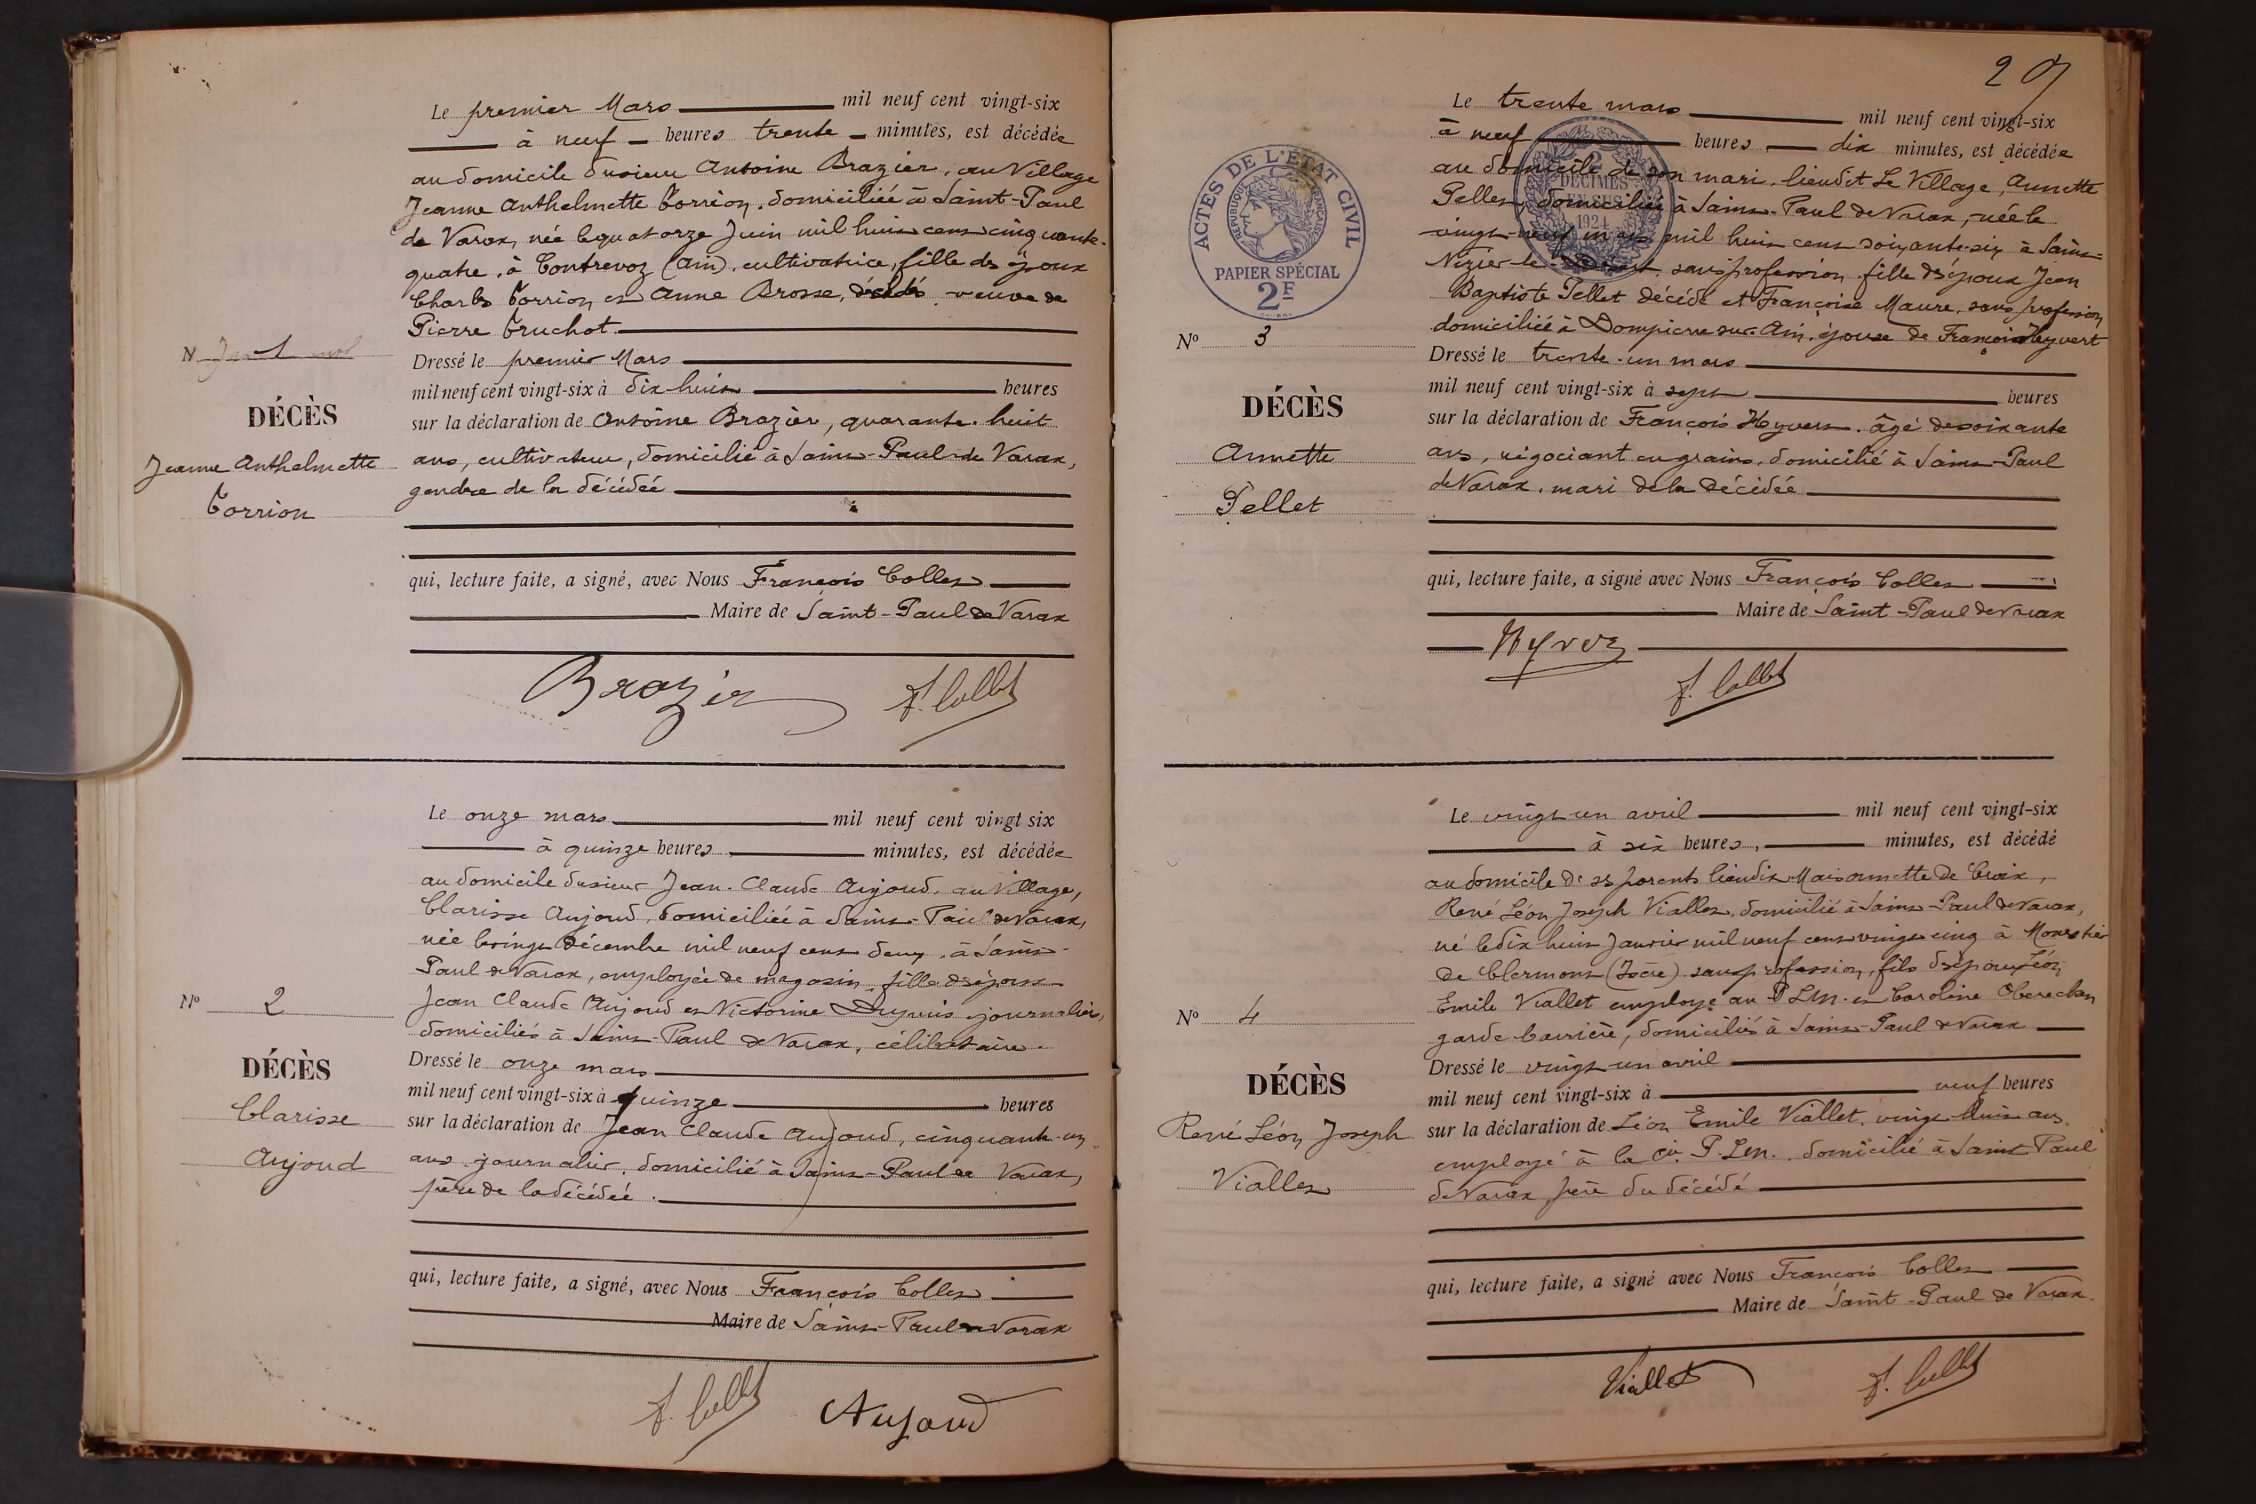 Le premier Mars mil neuf cent vingt-six
à neuf heures trente minutes, est décédée
au domicile du sieur Antoine Brazier, au Village
Jeanne Anthelmette Torrion, domiciliée à Saint-Paul
de Varax, née le quatorze Juin mil huit cent cinquante-
quatre, à Contrevoz (Ain), cultivatrice, fille des époux
Charles Torrion et Anne Brosse, décédés, veuve de
Pierre Truchot.
Nº 1
Dressé le premier Mars
mil neuf cent vingt-six à dix huit heures
DÉCÈS
sur la déclaration de Antoine Brazier, quarante-huit
Jeanne Anthelmette
ans, cultivateur, domicilié à Saint-Paul de Varax,
gendre de la décédée
Torrion
qui, lecture faite, a signé, avec Nous François Collet
Maire de Saint-Paul de Varax
Brazier F. Collet
Le onze mars mil neuf cent vingt six
à quinze heures minutes, est décédée
au domicile du sieur Jean-Claude Aujoud, au Village,
Clarisse Aujoud, domiciliée à Saint-Paul de Varax,
née le vingt décembre mil neuf cent deux, à Saint-
Paul de Varax, employée de magasin, fille des époux
Nº 2
Jean Claude Aujoud et Victorine Dupuis journaliers,
domiciliés à Saint-Paul de Varax, célibataire.
Dressé le onze mars
DÉCÈS
mil neuf cent vingt-six à quinze heures
Clarisse
sur la déclaration de Jean Claude Aujoud, cinquante-un
Aujoud
ans journalier, domicilié à Saint-Paul de Varax,
père de la décédée.
qui, lecture faite, a signé, avec Nous François Collet
Maire de Saint-Paul de Varax
F. Collet Aujoud
29
Le trente mars mil neuf cent vingt-six
à neuf heures dix minutes, est décédée
au domicile de son mari, lieudit Le Village, Annette
Pellet, domiciliée à Saint-Paul de Varax, née le
vingt-neuf mars mil huit cent soixante-six à Saint-
Nizier-le-Désert, sans profession, fille des époux Jean
Baptiste Pellet décédé et Françoise Maure, sans profession
domiciliée à Dompierre sur Ain, épouse de François Hyvert
ACTES DE L'ÉTAT CIVIL
RÉPUBLIQUE FRANÇAISE
PAPIER SPÉCIAL
2F
2
DÉCIMES
EN SUS
1924
Nº 3
Dressé le trente-un mars
mil neuf cent vingt-six à sept heures
DÉCÈS
sur la déclaration de François Hyvert, âgé de soixante
Annette
ans, négociant en grains, domicilié à Saint-Paul
de Varax, mari de la décédée
Pellet
qui, lecture faite, a signé avec Nous François Collet
Maire de Saint-Paul de Varax
Hyvert
F. Collet
Le vingt-un avril mil neuf cent vingt-six
à six heures, minutes, est décédé
au domicile de ses parents lieudit Maisonnette de Croix,
René Léon Joseph Viallet, domicilié à Saint-Paul de Varax,
né le dix huit Janvier mil neuf cent vingt cinq à Monestier
de Clermont (Isère) sans profession, fils des époux Léon
Emile Viallet employé au P.L.M. et Caroline
garde barrière, domiciliés à Saint-Paul de Varax
Nº 4
Dressé le vingt-un avril
DÉCÈS
mil neuf cent vingt-six à neuf heures
René Léon Joseph
sur la déclaration de Léon Emile Viallet, vingt-huit ans
employé à la Cie P.L.M. domicilié à Saint Paul
Viallet
de Varax, père du décédé
qui, lecture faite, a signé avec Nous François Collet
Maire de Saint-Paul de Varax
Viallet F. Collet